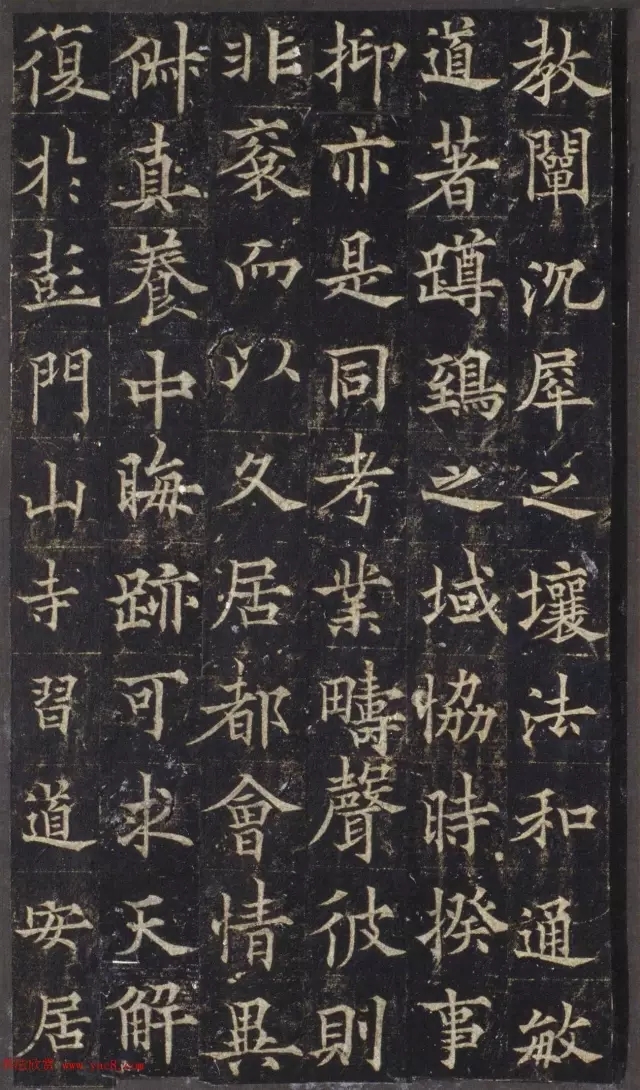 教闡沉犀之壤法和通敏
道著蹲鵄之域恊時揆事
抑亦是同考業疇聲彼則
非衮而以久居都會情異
真養中晦跡可求天解
復於彭門山寺習道安居
欣赏 www.yac8.com